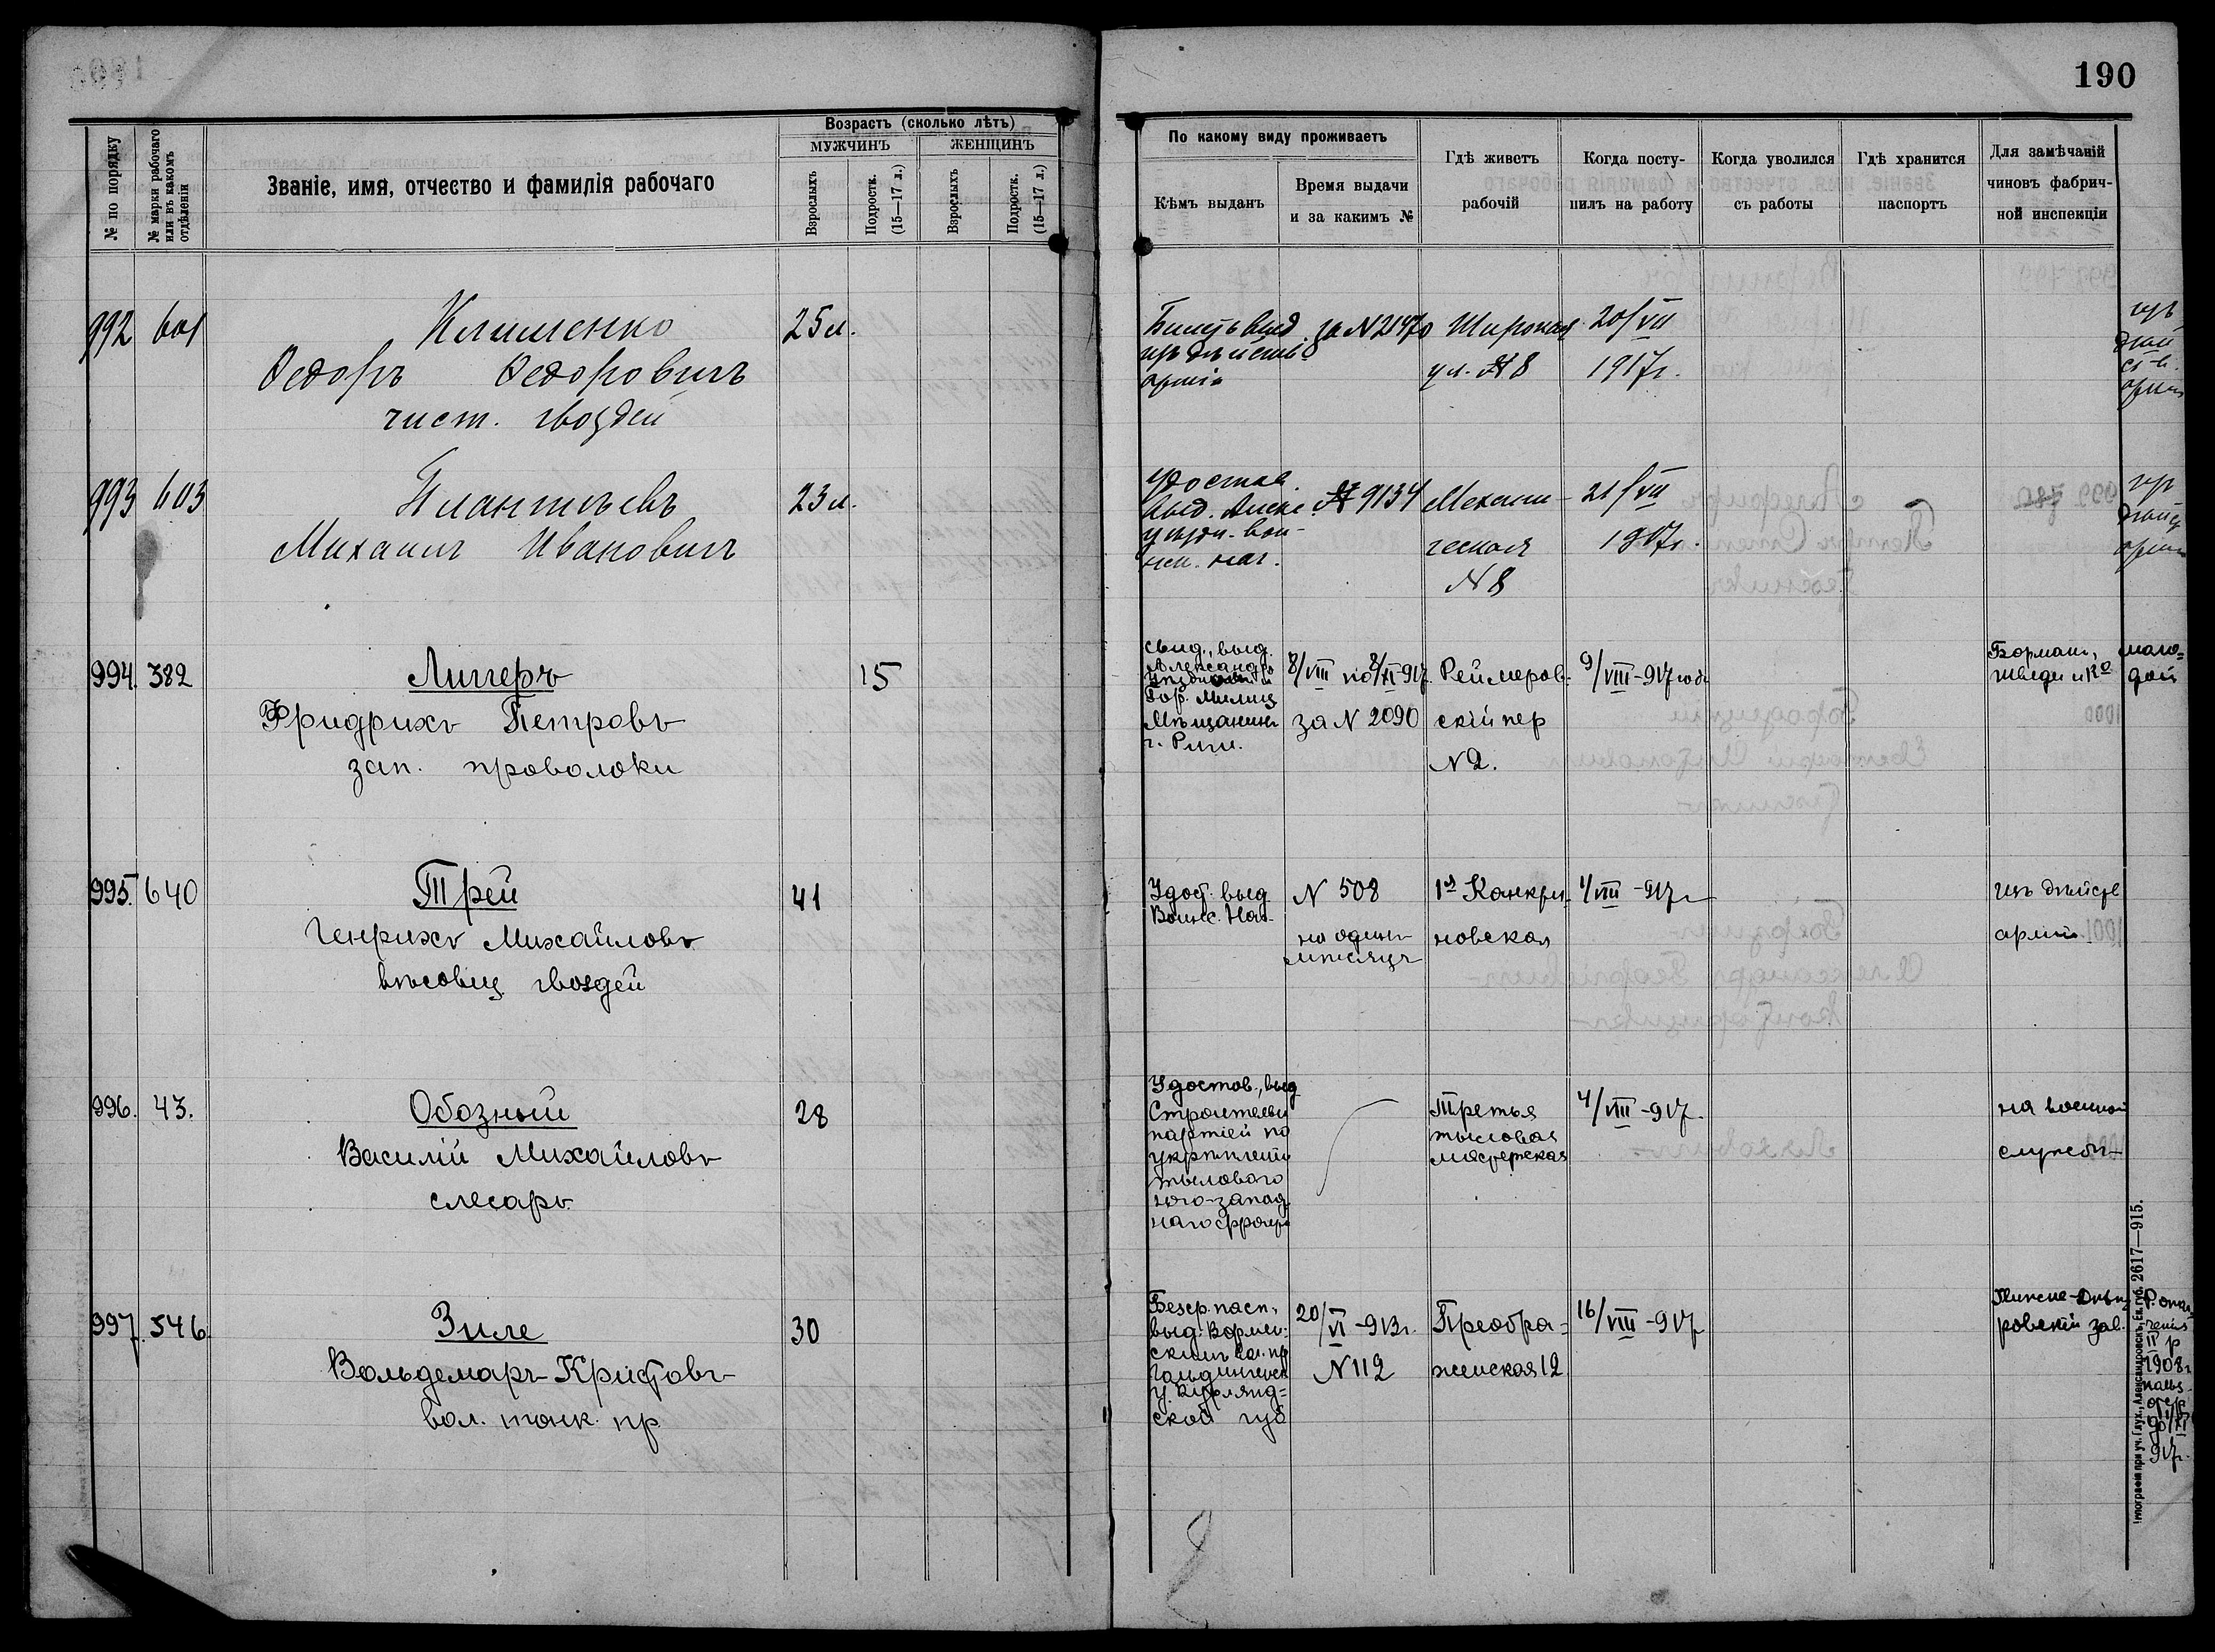 190
№ по порядку
№ марки рабочаго или въ какомъ отдѣленіи
Званіе, имя, отчество и фамилія рабочаго
Возрастъ (сколько лѣтъ)
МУЖЧИНЪ
ЖЕНЩИНЪ
Взрослыхъ
Подростк. (15—17 л.)
Взрослыхъ
Подростк. (15—17 л.)
По какому виду проживаетъ
Кѣмъ выданъ
Время выдачи
и за какимъ №
Гдѣ живетъ
рабочій
Когда посту-
пилъ на работу
Когда уволился
съ работы
Гдѣ хранится
паспортъ
Для замѣчаній
чиновъ фабрич-
ной инспекціи
992 601 Клименко 25 л.
Ѳедоръ Ѳедоровичъ
чист. гвоздей
Билетъ выд.
арміи
за № 21470
Широкая
ул. № 8
20/VII
1917г.
993 603 23 л.
Михаилъ Ивановичъ
Удостов.
выд.
№ 9134
Механи-
ческая
№ 8
21/VII
1917г.
994. 382 Лигеръ 15
Фридрихъ Петровъ
зап. проволоки
Свид., выд.
Александр
Гор. Милиц
Мѣщанинъ
г. Риги.
8/VIII по 8/XI-917
за № 2090
Реймеров-
скій пер
№ 2.
9/VIII-917 год
Борман,
Шведе и Ко
995. 640 Трей 41
Генрихъ Михайловъ
вѣсовщ. гвоздей
Удост. выд
Воинс. Нач-
№ 508
на одинъ
мѣсяцъ
1я Канкри-
новская
1/VIII-917г
изъ дѣйств
арміи
996. 43. Обозный 28
Василій Михайловъ
слесарь
Удостов., выд
Строителн
партіей по
укрѣпленію
тылового
юго-запад
наго фронта
Третья
тыловая
мастерская
4/VIII-917.
на военной
службѣ
997. 546. Зиле 30
Вольдемаръ Кристовъ
вол. тонк. пр
Безср. пасп.,
выд. Вормен-
скимъ вол. пр
Гольдингенск
у. Курлянд-
ской губ
20/VI-913г.
№ 112
Преобра-
женская 12
16/VIII-917
ровскій зав.
1908г
917г.
Типографія при уч. Глух., Александровскъ, Ек. губ. 2617—915.